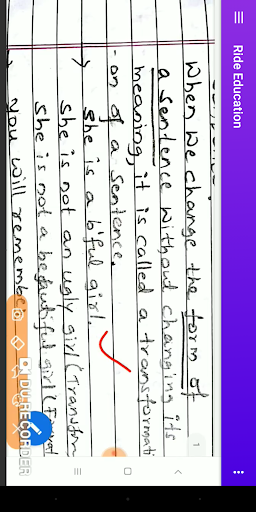 Ride Education
1
When we change the form of
a sentence without changing its
meaning, it is called a transformati
-on of a sentence.
She is a b'ful girl.
She is not an ugly girl (Transfor
she is not a beautiful girl (
you will remembe
DU RECORDER